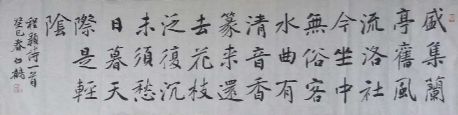 盛集蘭
亭舊風
流洛社
今坐中
無俗客
水曲有
清音香
篆来還
去花枝
泛復沉
未須愁
日暮天
際是輕
陰
程颢诗一首
癸巳春